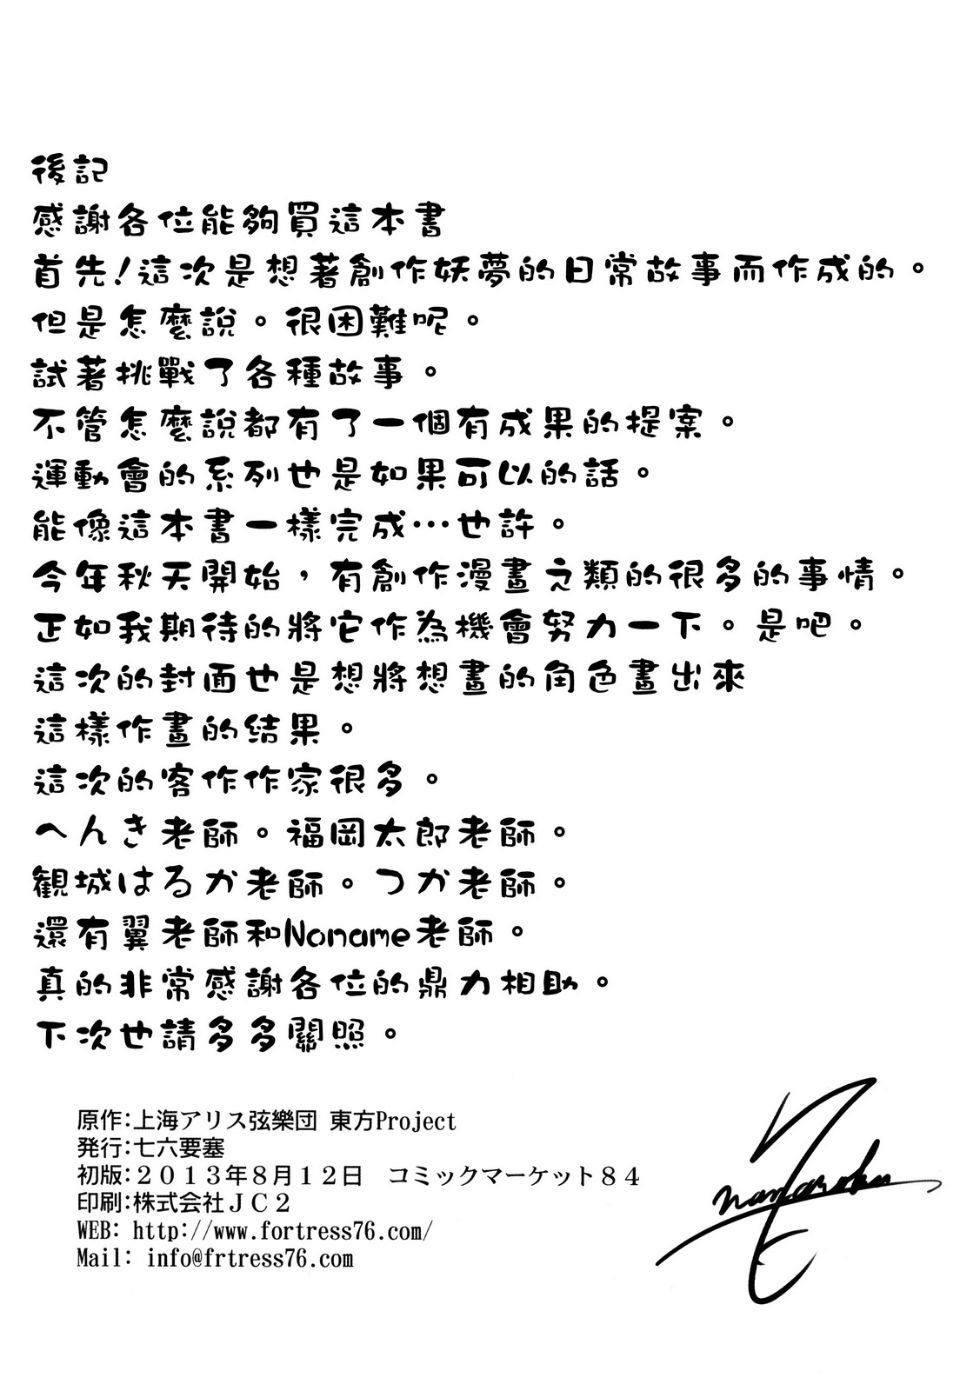 後記
感謝各位能夠買這本書
首先!這次是想著創作妖夢的日常故事而作成的。
但是怎麼說。很困難呢。
試著挑戰了各種故事。
不管怎麼說都有了一個有成果的提案。
運動會的系列也是如果可以的話。
能像這本書一樣完成…也許。
今年秋天開始，有創作漫畫之類的很多的事情。
正如我期待的將它作為機會努力一下。是吧。
這次的封面也是想將想畫的角色畫出來
這樣作畫的結果。
這次的客作作家很多。
へんき老師。福岡太郎老師。
観城はるか老師。つか老師。
還有翼老師和Noname老師。
真的非常感謝各位的鼎力相助。
下次也請多多關照。
原作:上海アリス弦樂団 東方Project
発行:七六要塞
初版:２０１３年８月１２日　コミックマーケット８４
印刷:株式会社ＪＣ２
WEB: http://www.fortress76.com/
Mail: info@frtress76.com
nanaroku